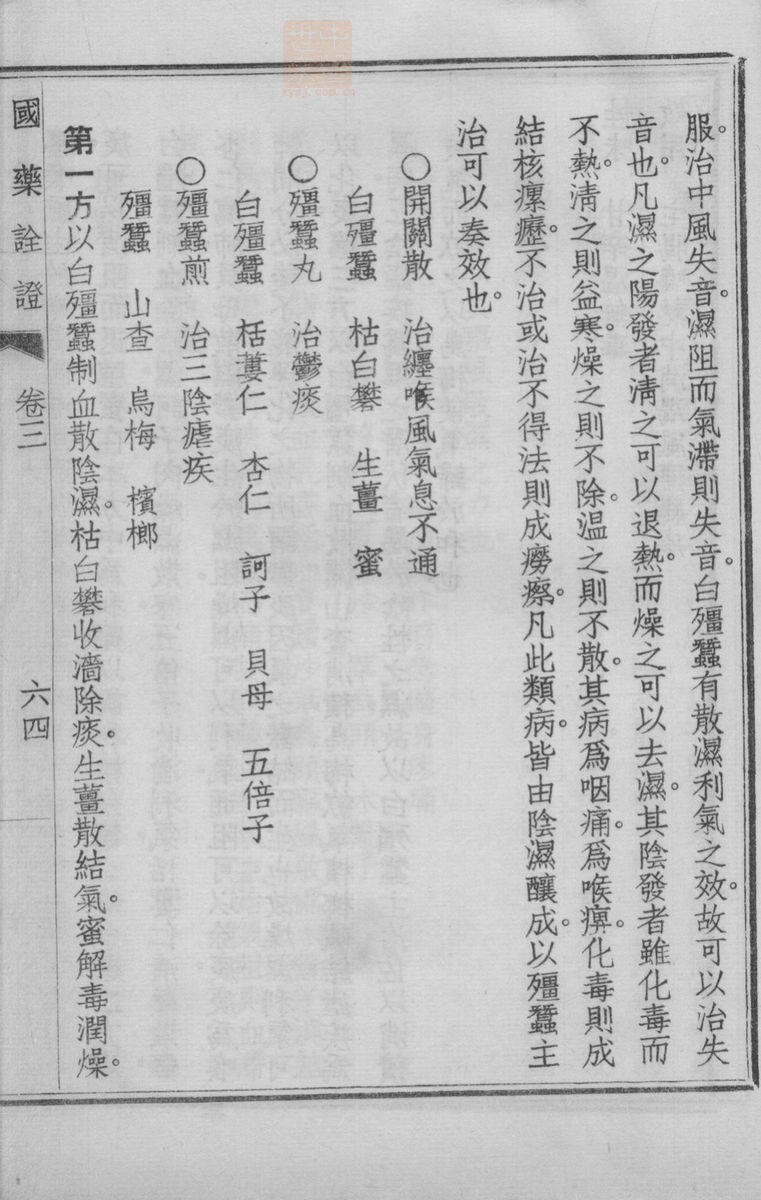 服。治中風失音。濕阻而氣滯則失音。白殭蠶有散濕利氣之效。故可以治失
音也。凡濕之陽發者淸之可以退熱。而燥之可以去濕。其陰發者雖化毒而
不熱。淸之則益寒。燥之則不除。温之則不散。其病爲咽痛。爲喉痹。化毒則成
結核瘰癧。不治或治不得法則成癆瘵。凡此類病。皆由陰濕釀成。以殭蠶主
治可以奏效也。
○開關散 治纏喉風氣息不通
白殭蠶 枯白礬 生薑 蜜
○殭蠶丸 治鬱痰
白殭蠶 栝蔞仁 杏仁 訶子 貝母 五倍子
○殭蠶煎 治三陰瘧疾
殭蠶 山查 烏梅 檳榔
第一方以白殭蠶制血散陰濕。枯白礬收濇除痰。生薑散結氣。蜜解毒潤燥。
國藥詮證 卷三 六四